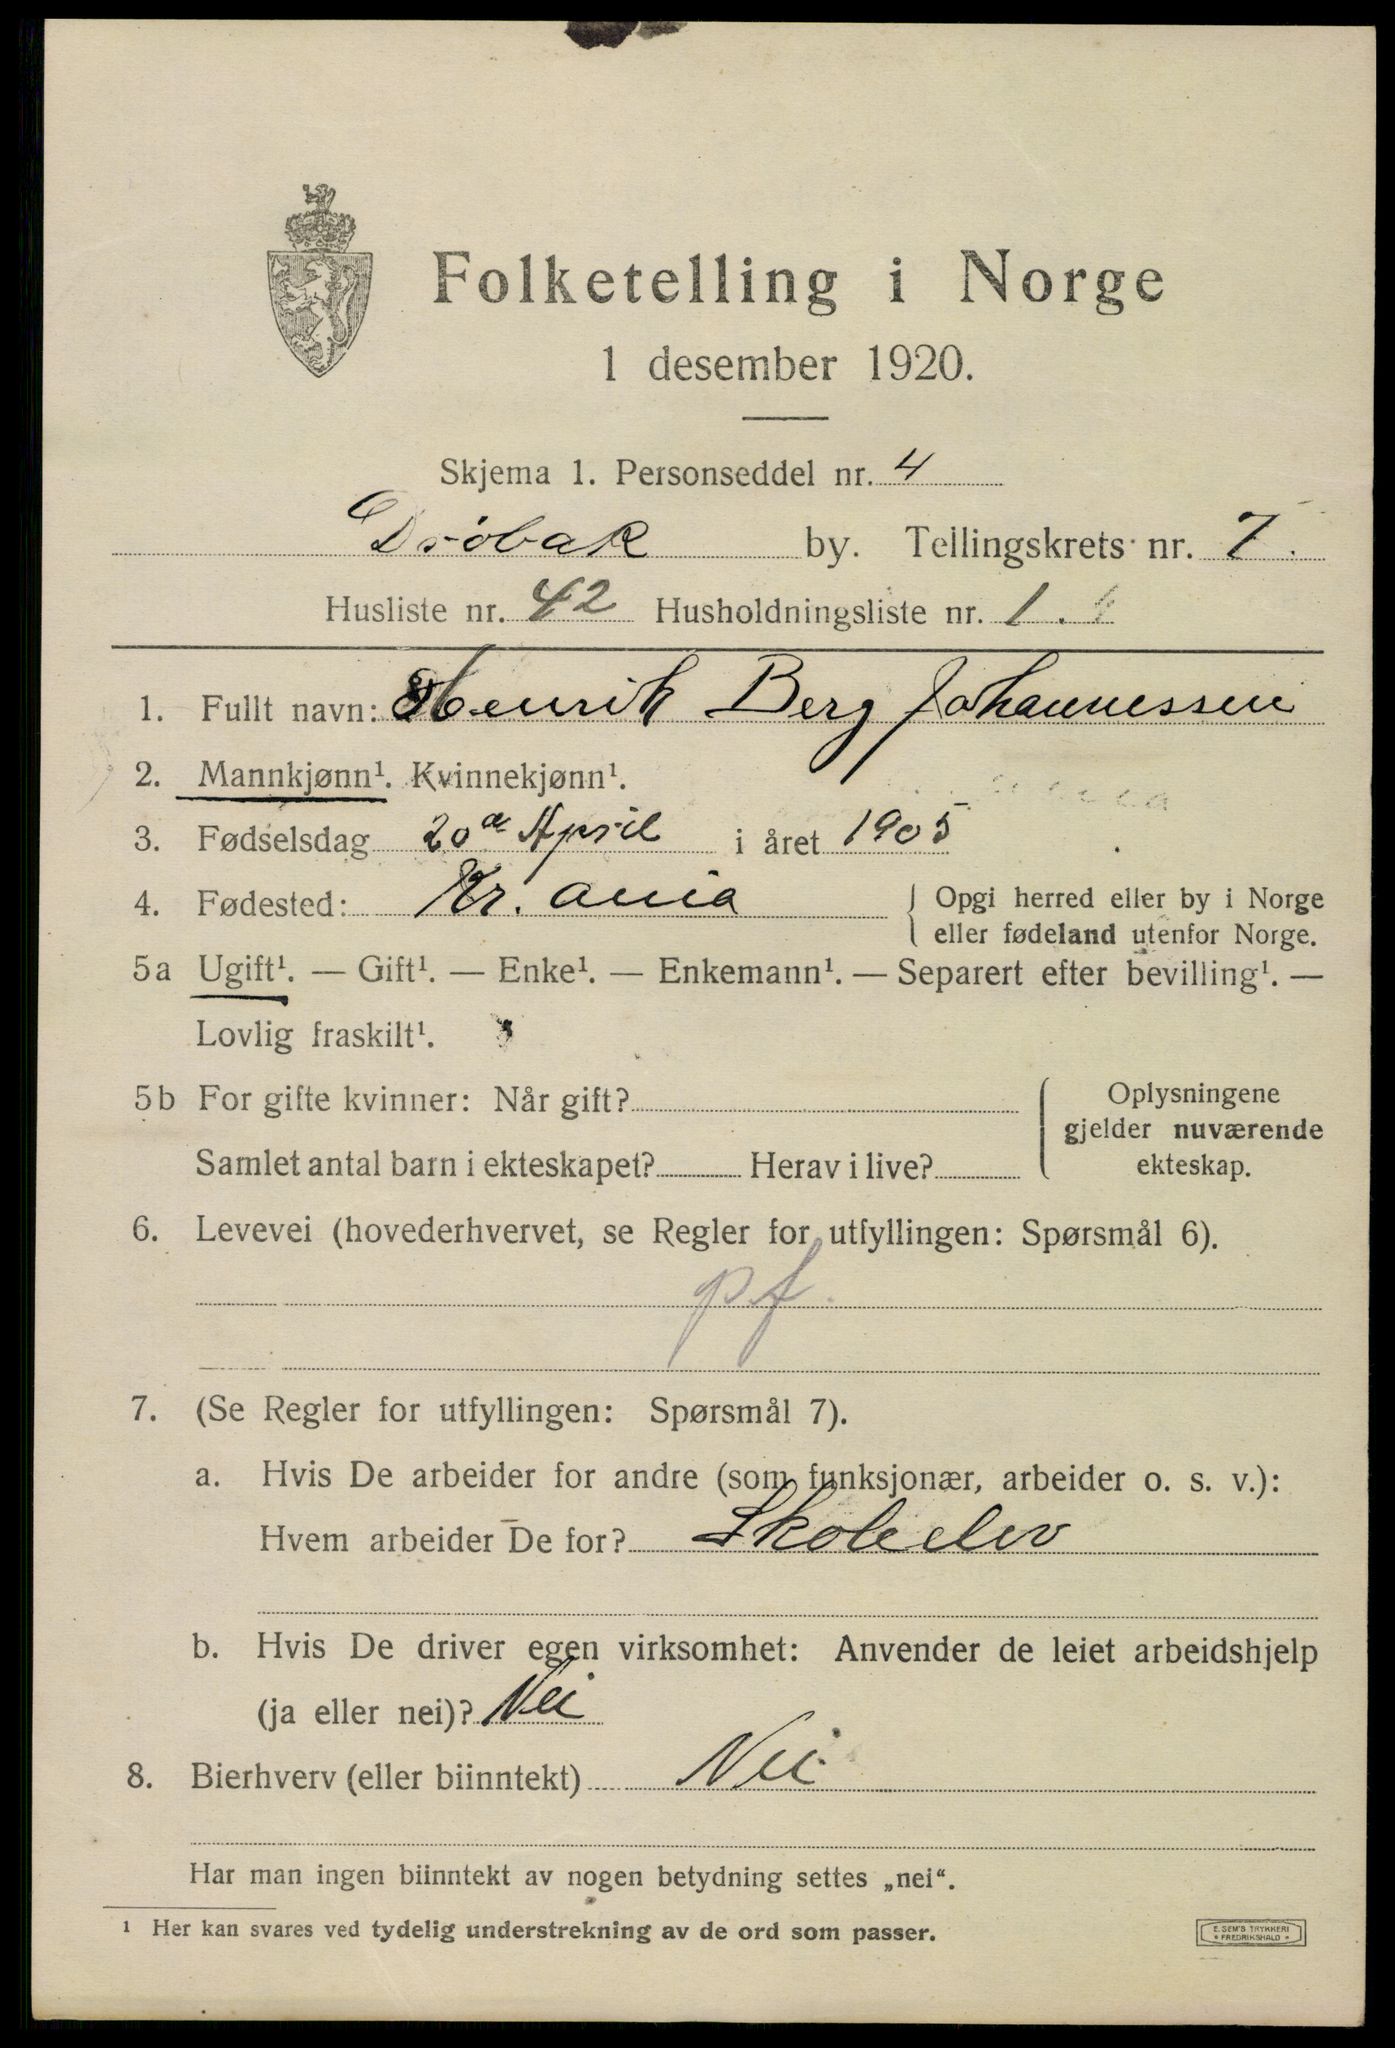 Folketelling i Norge
1 desember 1920.
Skjema 1. Personseddel nr. 4
Drøbak by. Tellingskrets nr. 7.
Husliste nr. 42 Husholdningsliste nr. 1.
1. Fullt navn: Henrik Berg Johannessen
2. Mannkjønn¹. Kvinnekjønn¹.
3. Fødselsdag 20de April i året 1905
4. Fødested: Kr.ania { Opgi herred eller by i Norge
eller fødeland utenfor Norge.
5a Ugift¹. — Gift¹. — Enke¹. — Enkemann¹. — Separert efter bevilling¹. —
Lovlig fraskilt¹.
5b For gifte kvinner: Når gift? { Oplysningene
gjelder nuværende
Samlet antal barn i ekteskapet? Herav i live? ekteskap.
6. Levevei (hovederhvervet, se Regler for utfyllingen: Spørsmål 6).
pf.
7. (Se Regler for utfyllingen: Spørsmål 7).
a. Hvis De arbeider for andre (som funksjonær, arbeider o. s. v.):
Hvem arbeider De for? Skoleelev
b. Hvis De driver egen virksomhet: Anvender de leiet arbeidshjelp
(ja eller nei)? Nei
8. Bierhverv (eller biinntekt) Nei
Har man ingen biinntekt av nogen betydning settes „nei“.
¹ Her kan svares ved tydelig understrekning av de ord som passer.
E. SEM'S TRYKKERI
* FREDRIKSHALD *